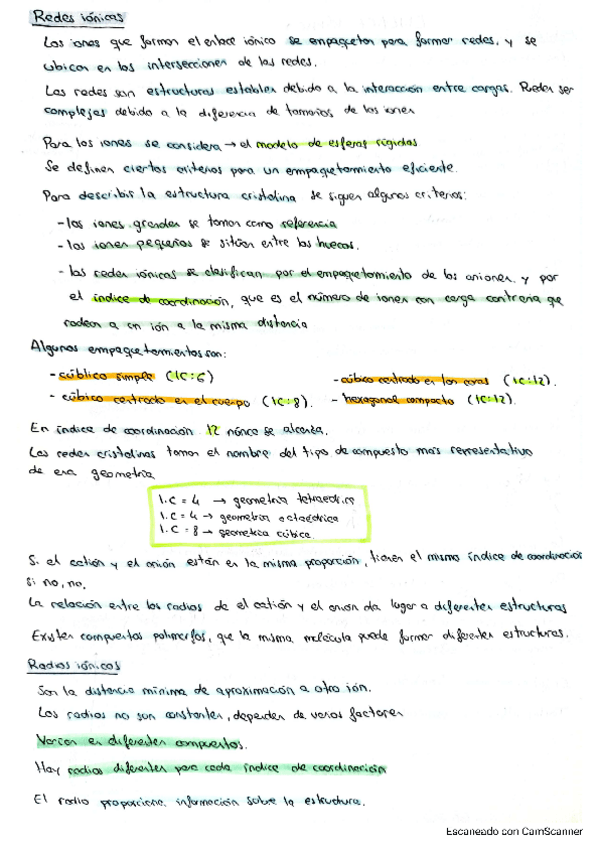 Redes iónicas
Los iones que forman el enlace iónico se empaquetan para formar redes, y se
ubican en las intersecciones de las redes.
Las redes son estructuras estables debido a la interacción entre cargas. Pueden ser
complejas debido a la diferencia de tamaños de los iones
Para los iones se considera → el modelo de esferas rígidas
Se definen ciertos criterios para un empaquetamiento eficiente.
Para describir la estructura cristalina se siguen algunos criterios:
- los iones grandes se toman como referencia
- los iones pequeños se sitúan entre los huecos.
- las redes iónicas se clasifican por el empaquetamiento de los aniones y por
el índice de coordinación, que es el número de iones con carga contraria que
rodean a un ión a la misma distancia
Algunos empaquetamientos son:
- cúblico simple (IC:6)
- cúbico centrado en las caras (IC:12).
- cúbico centrado en el cuerpo (IC:8).
- hexagonal compacto (IC:12).
En índice de coordinación 12 nunca se alcanza.
Las redes cristalinas toman el nombre del tipo de compuesto más representativo
de esa geometría
I.C = 4 → geometría tetraédrica
I.C = 4 → geometría octaédrica
I.C = 8 → geometría cúbica
Si el catión y el anión están en la misma proporción, tienen el mismo índice de coordinación
si no, no.
La relación entre los radios de el catión y el anión da lugar a diferentes estructuras
Existen compuestos polimorfos, que la misma molécula puede formar diferentes estructuras.
Radios iónicos
Son la distancia mínima de aproximación a otro ión.
Los radios no son constantes, dependen de varios factores
Varían en diferentes compuestos.
Hay radios diferentes para cada índice de coordinación
El radio proporciona información sobre la estructura.
Escaneado con CamScanner